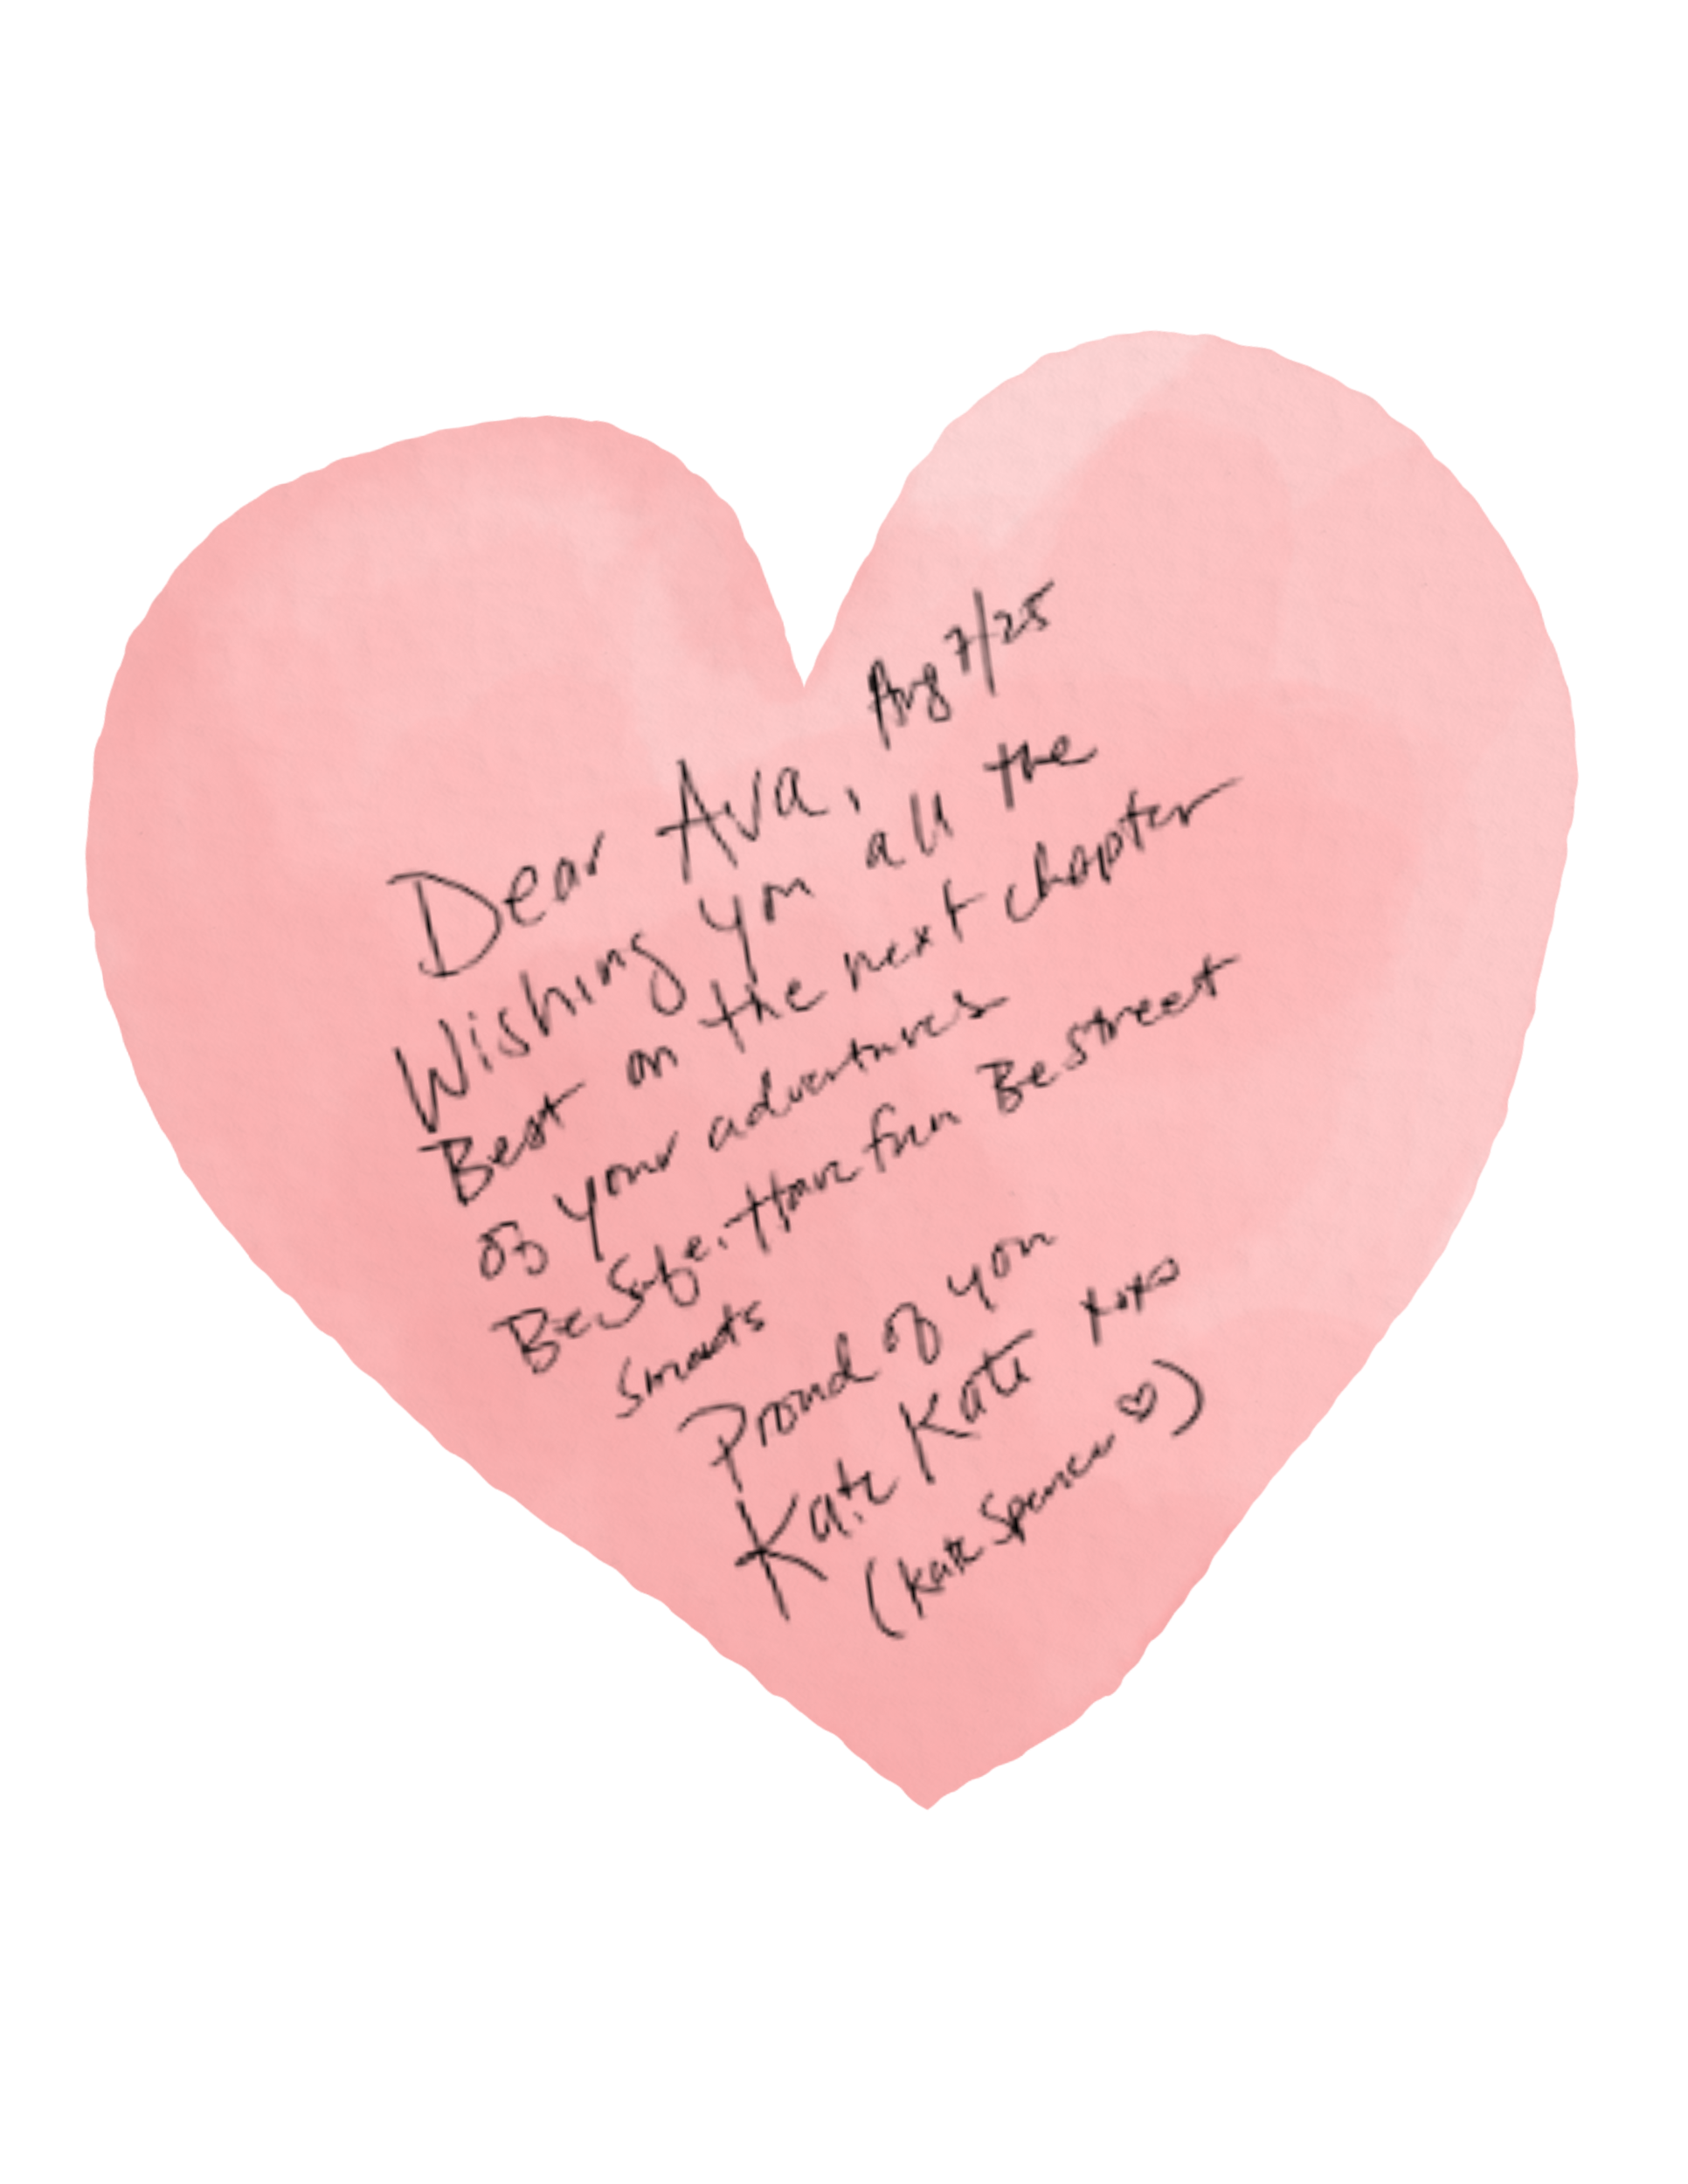 Aug 7/25
Dear Ava,
Wishing you all the
Best on the next chapter
of your adventures
Be Safe. Have fun Be street
smarts
Proud of you
Kate Kate xoxo
(Kate Spencer ♡)